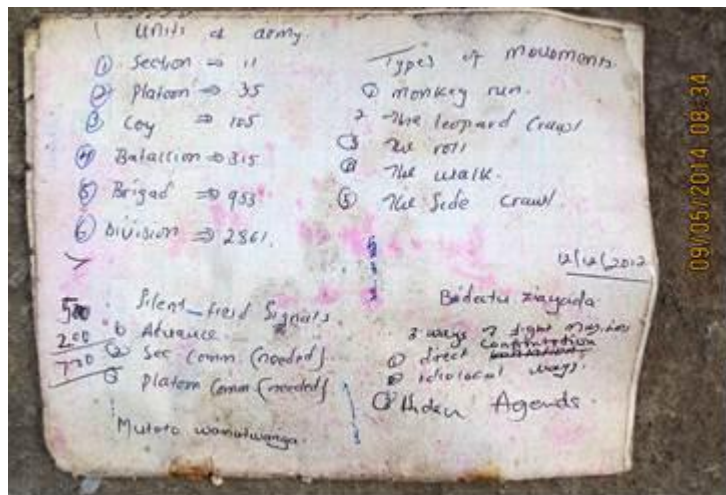 Units of army.
① Section ⇒ 11
② Platoon ⇒ 35
③ Coy ⇒ 105
④ Batallion ⇒ 315
⑤ Brigad ⇒ 953
⑥ Division ⇒ 2861.
Types of movements.
① monkey run.
2 The leopard crawl
③ The roll
④ The walk.
⑤ The Side crawl.
12/12/2012
500
200
700
Silent field Signals
① Advance
② Sec Comm (needed)
③ Platoon Comm (needed)
Mutoto
3 ways of
① direct
② ways.
③ Hiden Agends.
09/05/2014 08:34